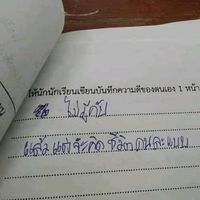 ให้นักนักเรียนเขียนบันทึกความดีของตนเอง 1 หน้า
ไม่รู้กับ
แล้วแต่จะคิด ชีวิตคนละแบบ